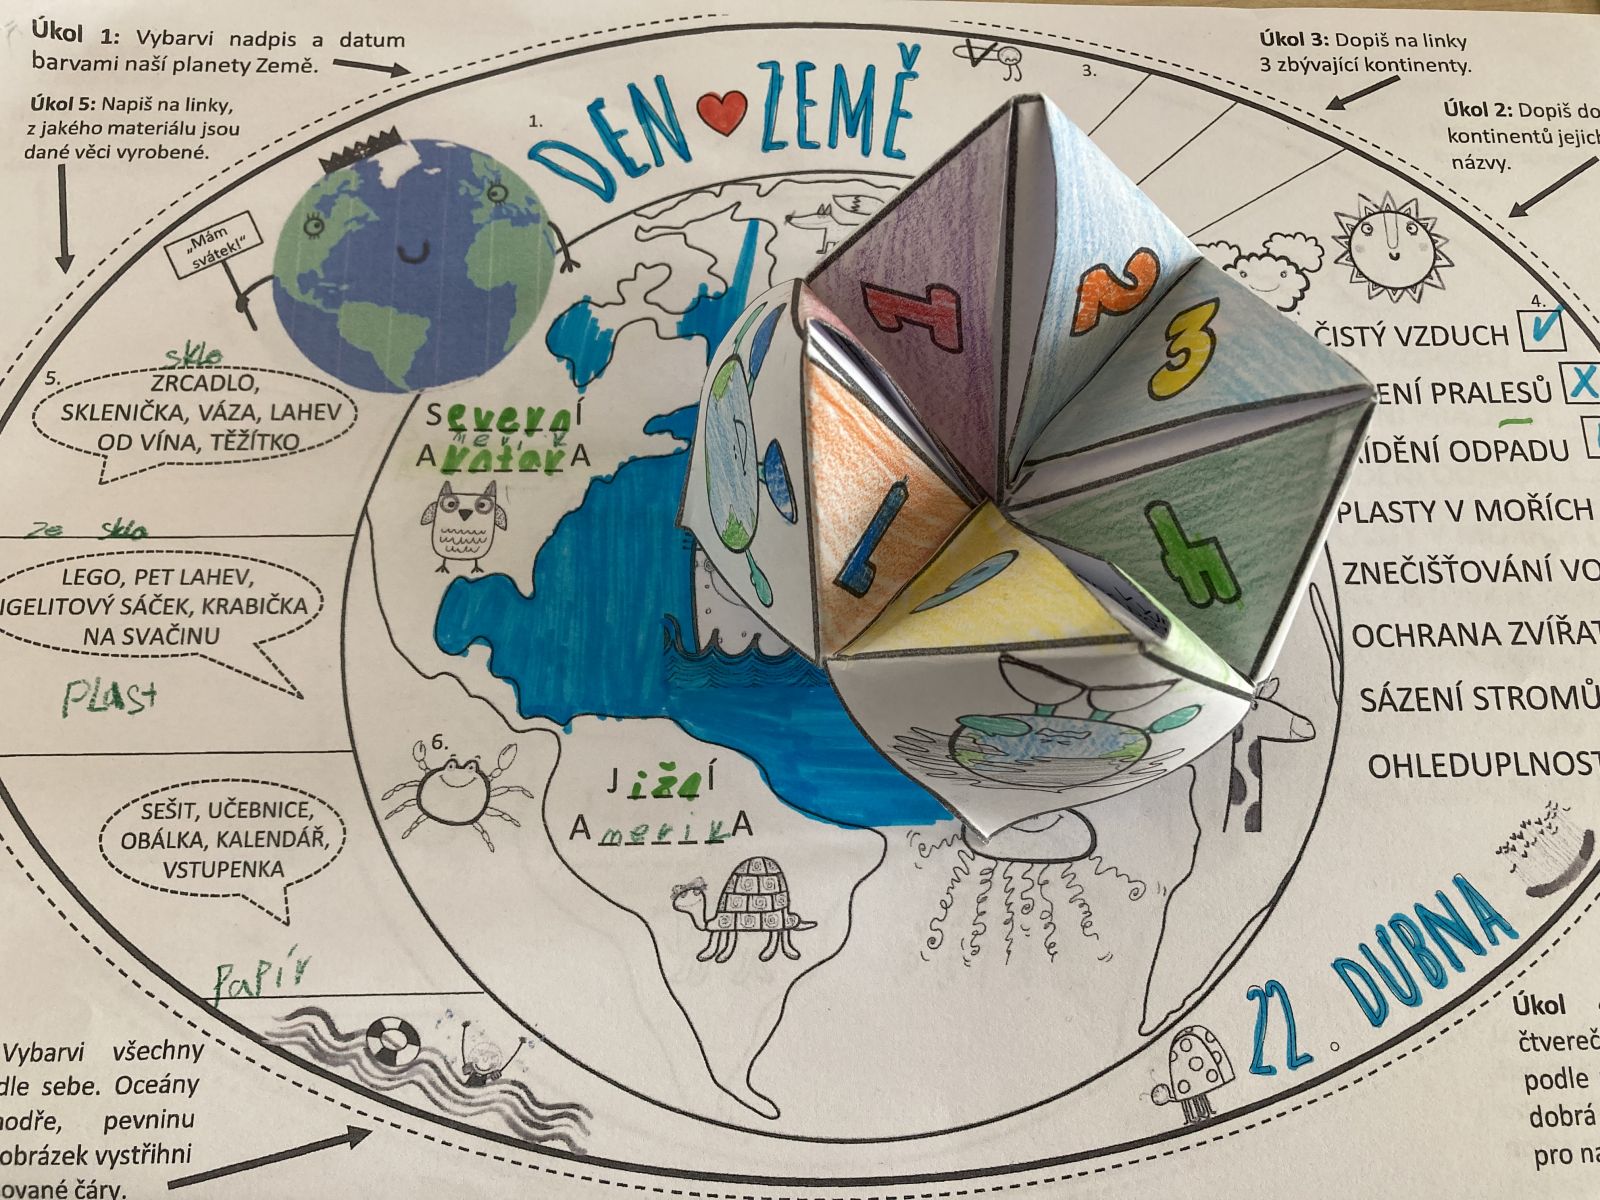 Úkol 1: Vybarvi nadpis a datum
barvami naší planety Země.
Úkol 5: Napiš na linky,
z jakého materiálu jsou
dané věci vyrobené.
1.
DEN ZEMĚ
3.
Úkol 3: Dopiš na linky
3 zbývající kontinenty.
Úkol 2: Dopiš do
kontinentů
názvy.
„Mám
svátek!“
5.
sklo
ZRCADLO,
SKLENIČKA, VÁZA, LAHEV
OD VÍNA, TĚŽÍTKO
ze skla
LEGO, PET LAHEV,
IGELITOVÝ SÁČEK, KRABIČKA
NA SVAČINU
PLast
SEŠIT, UČEBNICE,
OBÁLKA, KALENDÁŘ,
VSTUPENKA
PaPír
Severní
A A
6.
Jižní
AmerikA
1
2
3
4
7
4.
ČISTÝ VZDUCH
ENÍ PRALESŮ X
ÍDĚNÍ ODPADU
PLASTY V MOŘÍCH
ZNEČIŠŤOVÁNÍ VO
OCHRANA ZVÍŘAT
SÁZENÍ STROMŮ
OHLEDUPLNOST
22. DUBNA
Vybarvi všechny
dle sebe. Oceány
modře, pevninu
obrázek vystřihni
ované čáry.
Úkol
čtvereč
podle
dobrá
pro na